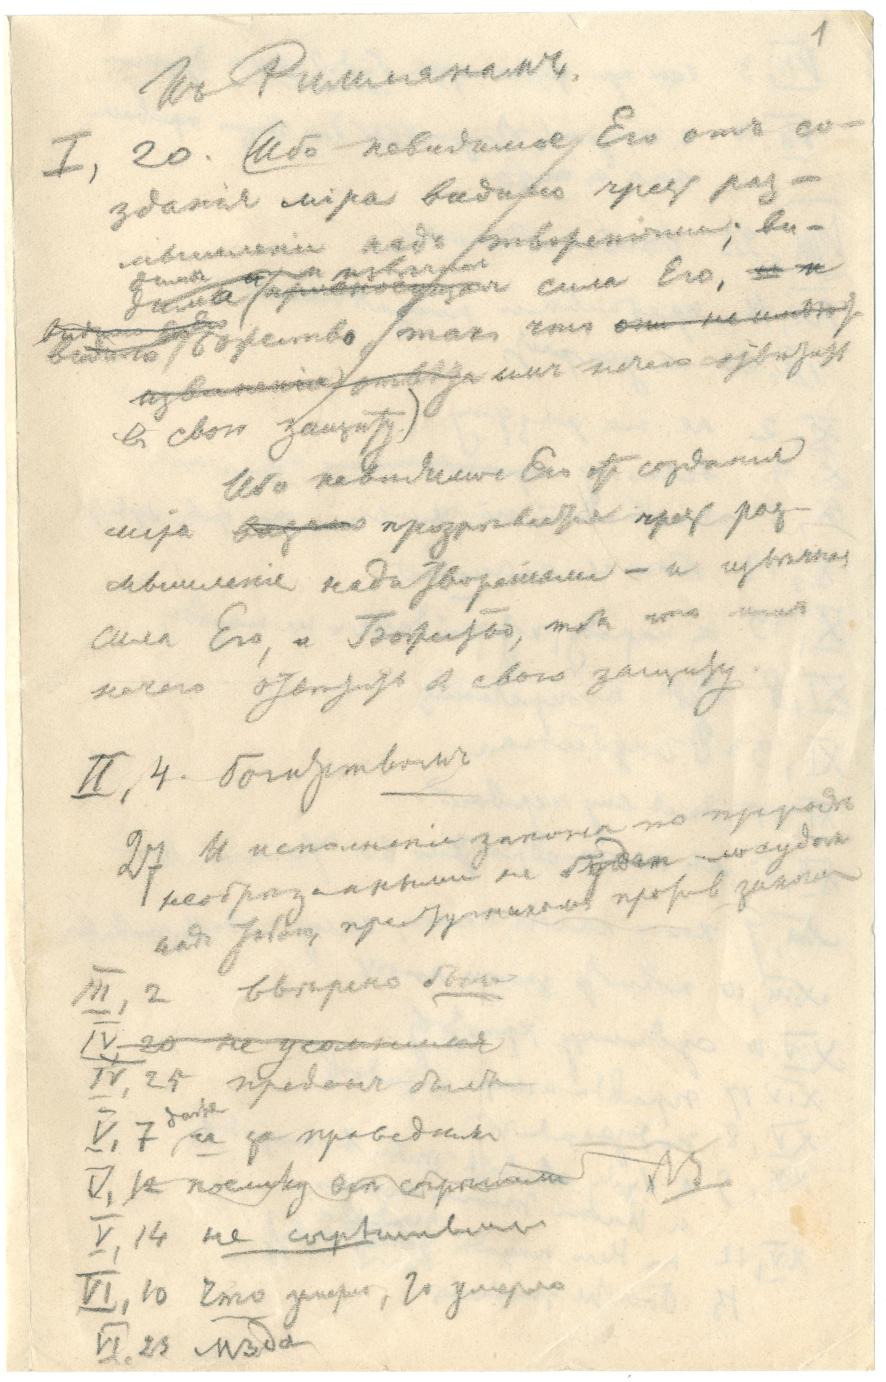 1
Къ Римлянамъ.
I, 20. (Ибо невидимое Его отъ со-
зданія міра видимо чрез раз-
мышленіе надъ твореніями; ви-
дима и
дима сила Его, и и
видимо Божество так что они не имѣют
извиненія отвѣта имъ нечего отвѣтить
в свою защиту.)
Ибо невидимое Его от созданія
міра видимо прозрѣвается чрез раз-
мышленіе надъ твореніями – и
сила Его, и Божество, так что имъ
нечего отвѣтить в свою защиту.
II, 4. богатствомъ
27 И исполненіе закона по природѣ
необрѣзанными не будет
над тобою, преступником против закона
III, 2 ввѣрено было
IV, 20 не усомнился
IV, 25 преданъ былъ
даже
V, 7 за праведника
V, 12 поелику всѣ согрѣшили NB
V, 14 не согрѣшившими
VI, 10 Что умерло, то умерло
VI. 23 мзда